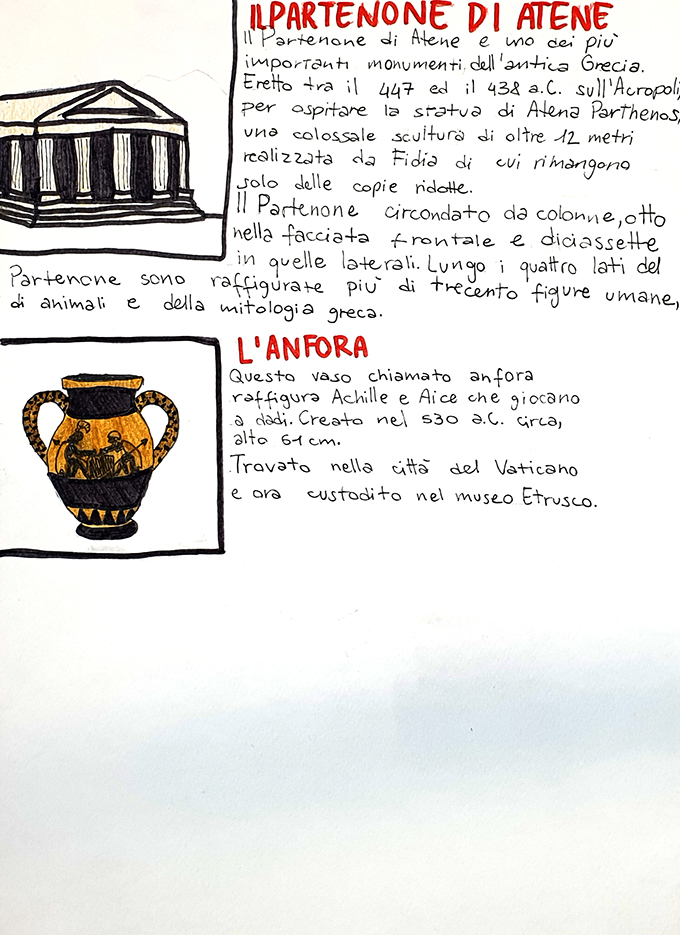 IL PARTENONE DI ATENE
Il Partenone di Atene e uno dei più
importanti monumenti dell'antica Grecia.
Eretto tra il 447 ed il 438 a.C. sull'Acropoli,
per ospitare la statua di Atena Parthenos,
una colossale scultura di oltre 12 metri
realizzata da Fidia di cui rimangono
solo delle copie ridotte.
Il Partenone circondato da colonne, otto
nella facciata frontale e diciassette
in quelle laterali. Lungo i quattro lati del
Partenone sono raffigurate più di trecento figure umane,
di animali e della mitologia greca.
L'ANFORA
Questo vaso chiamato anfora
raffigura Achille e Aice che giocano
a dadi. Creato nel 530 a.C. circa,
alto 61 cm.
Trovato nella città del Vaticano
e ora custodito nel museo Etrusco.